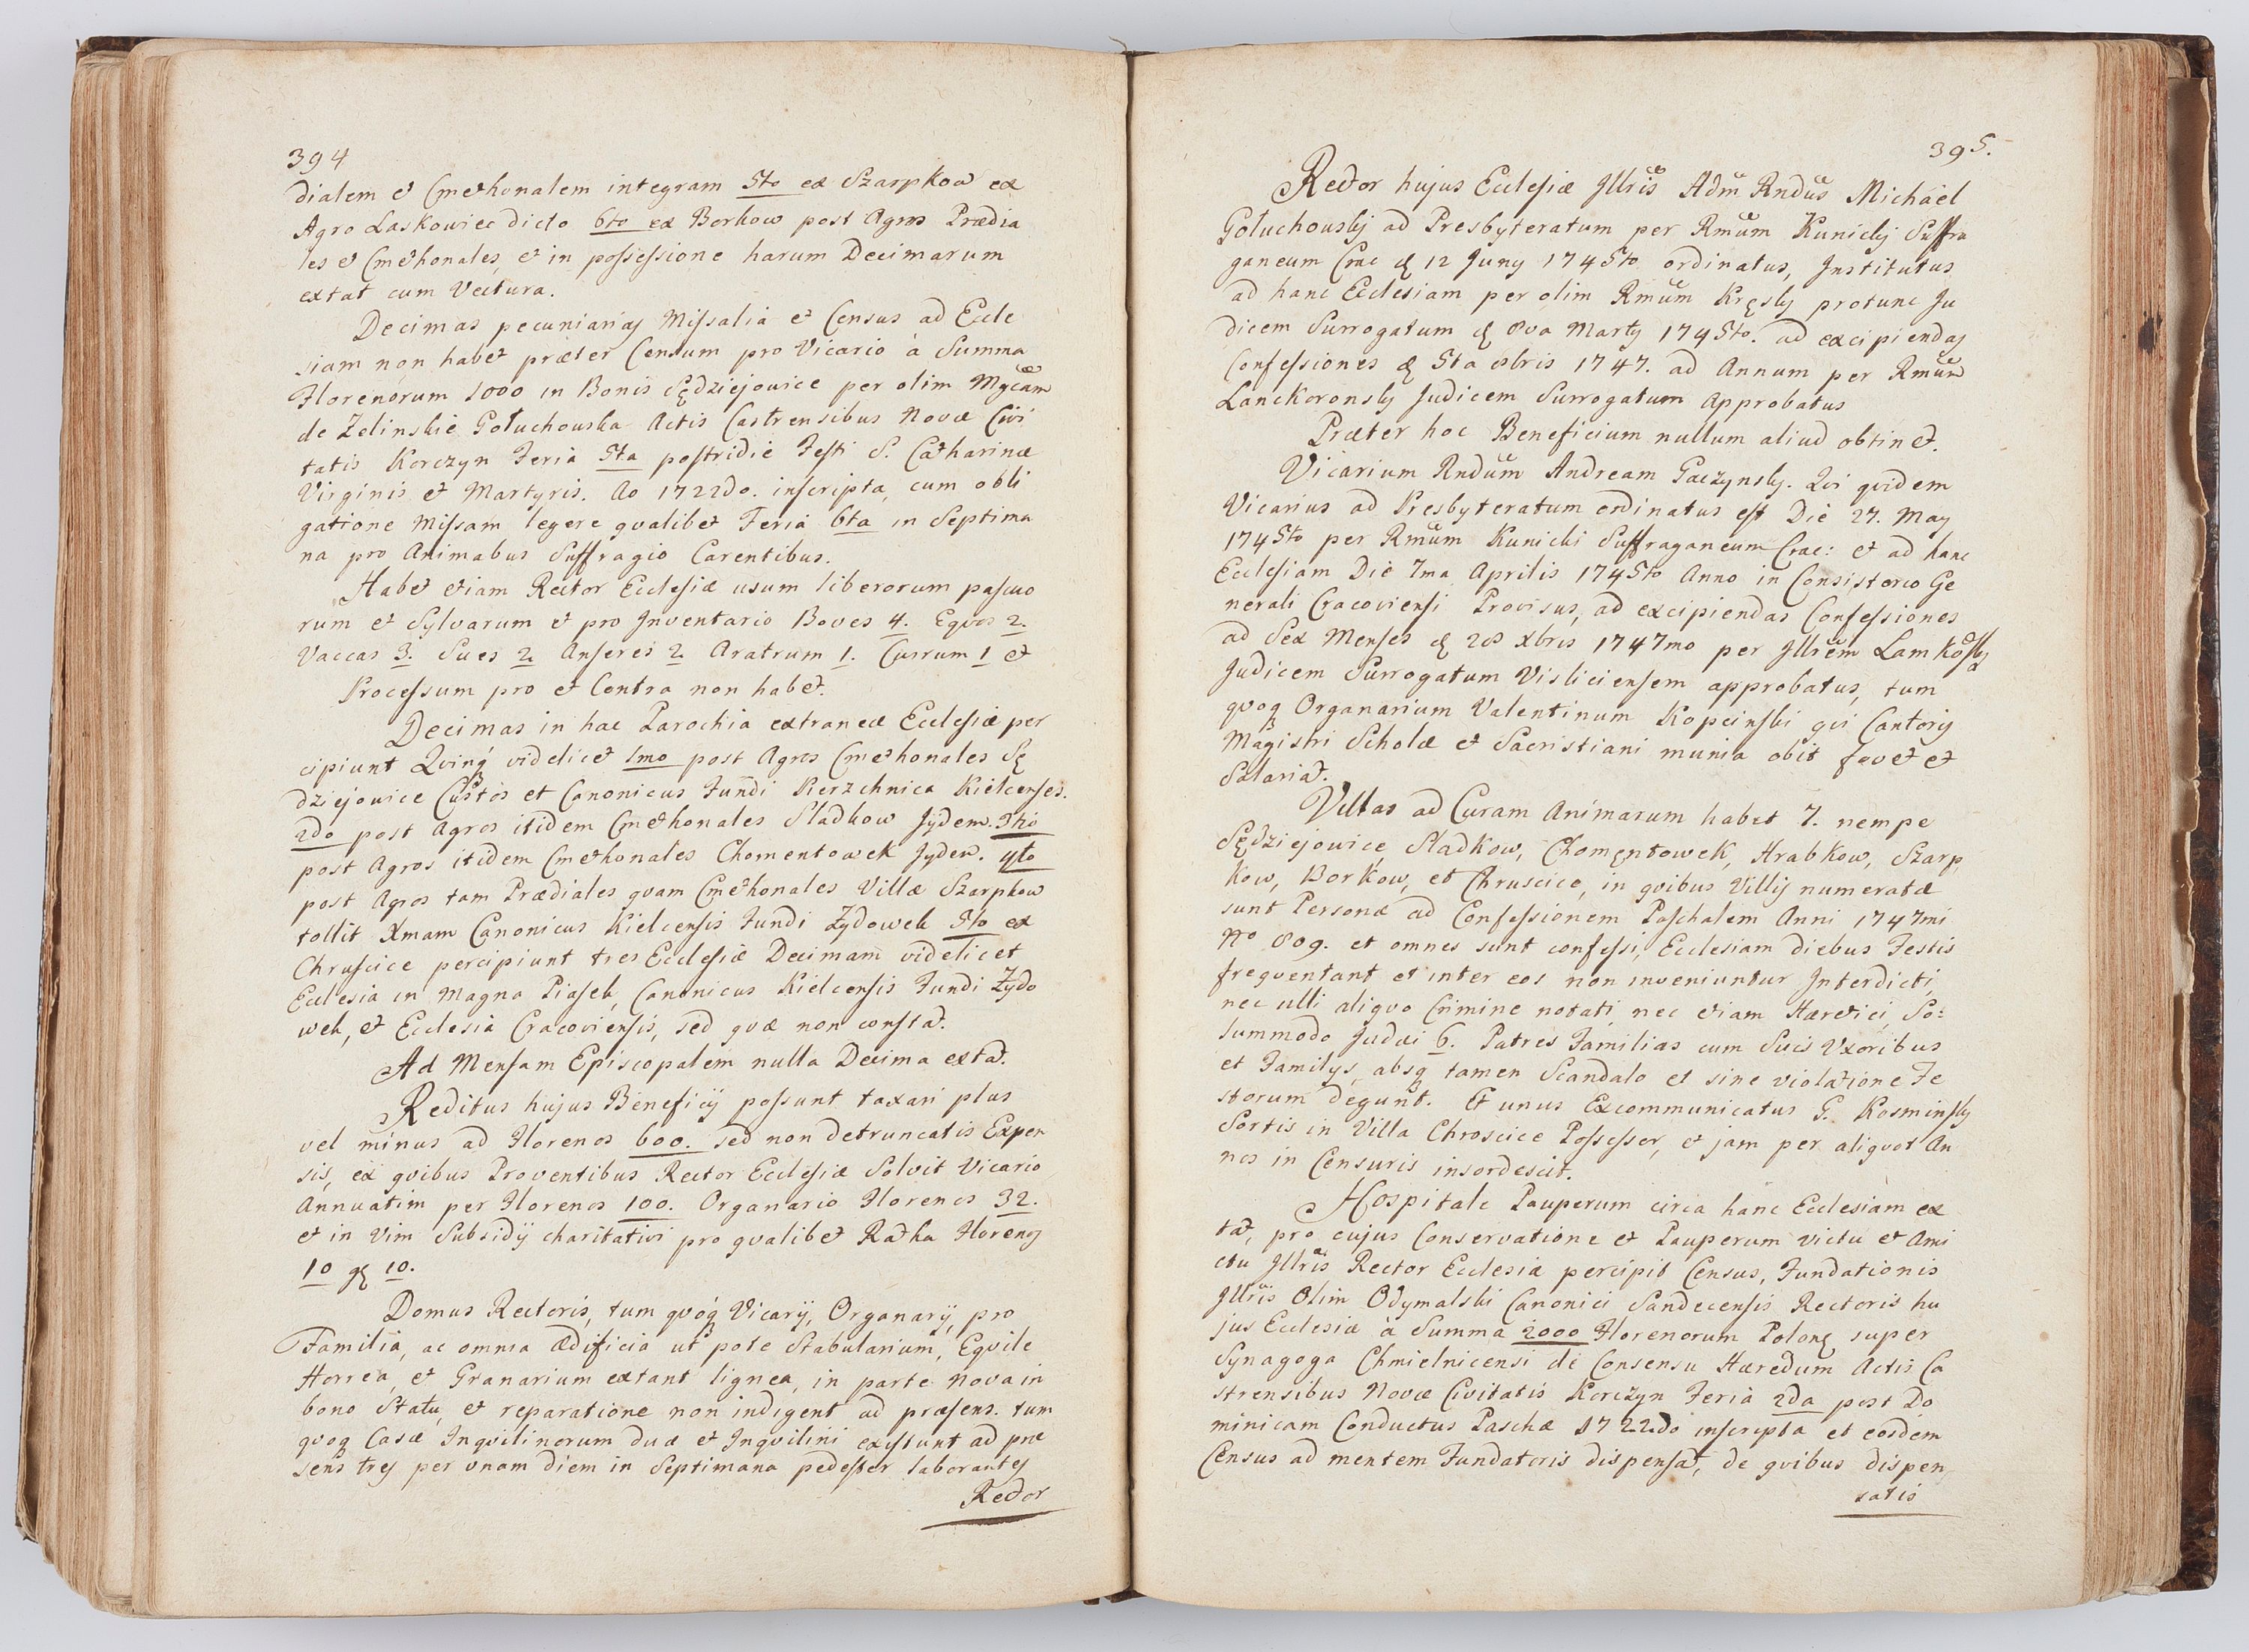 394
dialem et Cmethonalem integram 5to ex Szarpkow ex
Agro Laskowiec dicto 6to ex Borkow post Agros Prædia
les et Cmethonales, et in possessione harum Decimarum
extat cum Vectura.
Decimas pecuniarias Missalia et Census ad Eccle
siam non habet præter Censum pro Vicario à Summa
Florenorum 1000 in Bonis Sędziejowice per olim Mgcam
de Zelinskie Gołuchowska Actis Castrensibus Novæ Civi
tatis Korczyn Feria 5ta postridie Festi S. Catharinæ
Virginis et Martyris. Ao 1722do. inscripta, cum obli
gatione Missam legere qvalibet Feria 6ta in Septima
na pro Animabus Suffragio Carentibus.
Habet etiam Rector Ecclesiæ usum liberorum pascuo
rum et Sylvarum et pro Inventario Boves 4. Eqvos 2.
Vaccas 3. Sues 2. Anseres 2. Aratrum 1. Currum 1 et
Processum pro et Contra non habet.
Decimas in hac Parochia extraneæ Ecclesiæ per
cipiunt Qvinq videlicet 1mo post Agros Cmethonales Sę
dziejowice Custos et Canonicus Fundi Kierzchnica Kielcenses.
2do post Agros itidem Cmethonales Sladkow Iydem. 3tio
post Agros itidem Cmethonales Chomentowek Iydem. 4to
post Agros tam Prædiales qvam Cmethonales Villæ Szarpkow
tollit Xmam Canonicus Kielcensis Fundi Zydowek 5to ex
Chruscice percipiunt tres Ecclesiæ Decimam videlicet
Ecclesia in Magna Piasek, Canonicus Kielcensis Fundi Zydo
wek, et Ecclesia Cracoviensis, sed qvæ non constat.
Ad Mensam Episcopalem nulla Decima extat.
Reditus hujus Beneficij possunt taxari plus
vel minus ad Florenos 600. sed non detruncatis Expen
sis, ex qvibus Proventibus Rector Ecclesiæ Solvit Vicario
Annuatim per Florenos 100. Organario Florenos 32.
et in Vim Subsidij charitativi pro qvalibet Ratha Florenos
10 g 10.
Domus Rectoris, tum qvoq Vicarij, Organarij, pro
Familia, ac omnia Ædificia ut pote Stabularium, Eqvile
Horrea, et Granarium extant lignea, in parte nova in
bono Statu, et reparatione non indigent ad præsens. tum
qvoq Casæ Inqvilinorum duæ et Inqvilini existunt ad præ
sens tres per unam diem in Septimana pedester laborantes
Rector
395.
Rector hujus Ecclesiæ Illris Adm Rndus Michael
Gołuchowsky ad Presbyteratum per Rmum Kunicky Suffra
ganeum Crac d 12 Juny 1745to ordinatus, Institutus
ad hanc Ecclesiam per olim Rmum Kręsky protunc Ju
dicem Surrogatum d 8va Marty 1745to. ad excipiendas
Confessiones d 5ta 8bris 1747. ad Annum per Rmum
Lanckoronsky Judicem Surrogatum Approbatus
Præter hoc Beneficium nullum aliud obtinet.
Vicarium Rndum Andream Gaczynsky. Qvi qvidem
Vicarius ad Presbyteratum ordinatus est Die 27. May
1745to per Rmum Kunicki Suffraganeum Crac: et ad hanc
Ecclesiam Die 7ma Aprilis 1745to Anno in Consistorio Ge
nerali Cracoviensi Provisus, ad excipiendas Confessiones
ad Sex Menses d 20 Xbris 1747mo per Illrem
Judicem Surrogatum Visliciensem approbatus, tum
qvoq Organarium Valentinum Kopcinski qvi Cantoris
Magistri Scholæ et Sacristiani munia obit fovet et
Salariat.
Villas ad Curam Animarum habet 7. nempe
Sędziejowice, Sladkow, Chomentowek, Hrabkow, Szarp
kow, Borkow, et Chruscice, in qvibus Villis numeratæ
sunt Personæ ad Confessionem Paschalem Anni 1747mi
No 809. et omnes sunt confessi, Ecclesiam diebus Festis
freqventant et inter eos non inveniuntur Interdicti
nec ulli aliqvo Crimine notati, nec etiam Hæretici, So=
summodo Judæi 6. Patres Familias cum Suis Uxoribus
et Familys, absq tamen Scandalo et sine violatione Fe
storum degunt. Et unus Excommunicatus G. Kosminsky
Sortis in Villa Chroscice Possessor, et jam per aliqvot An
nos in Censuris insordescit.
Hospitale Pauperum circa hanc Ecclesiam ex
tat, pro cujus Conservatione et Pauperum victu et Ami
ctu Illris Rector Ecclesiæ percipit Census, Fundationis
Illris Olim Odymalski Canonici Sandecensis Rectoris hu
jus Ecclesiæ à Summa 2000 Florenorum Polon super
Synagoga Chmielnicensi de Consensu Hæredum Actis Ca
strensibus Novæ Civitatis Korczyn Feria 2da post Do
minicam Conductus Paschæ 1722do inscripta et eosdem
Census ad mentem Fundatoris dispensat, de qvibus dispen
satis